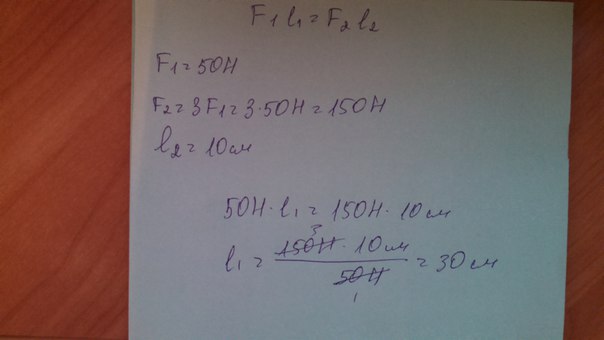 F₁ l₁ = F₂ l₂
F₁ = 50Н
F₂ = 3F₁ = 3·50Н = 150Н
l₂ = 10см
50Н · l₁ = 150Н · 10см
3
l₁ = 150Н · 10см / 50Н = 30см
1